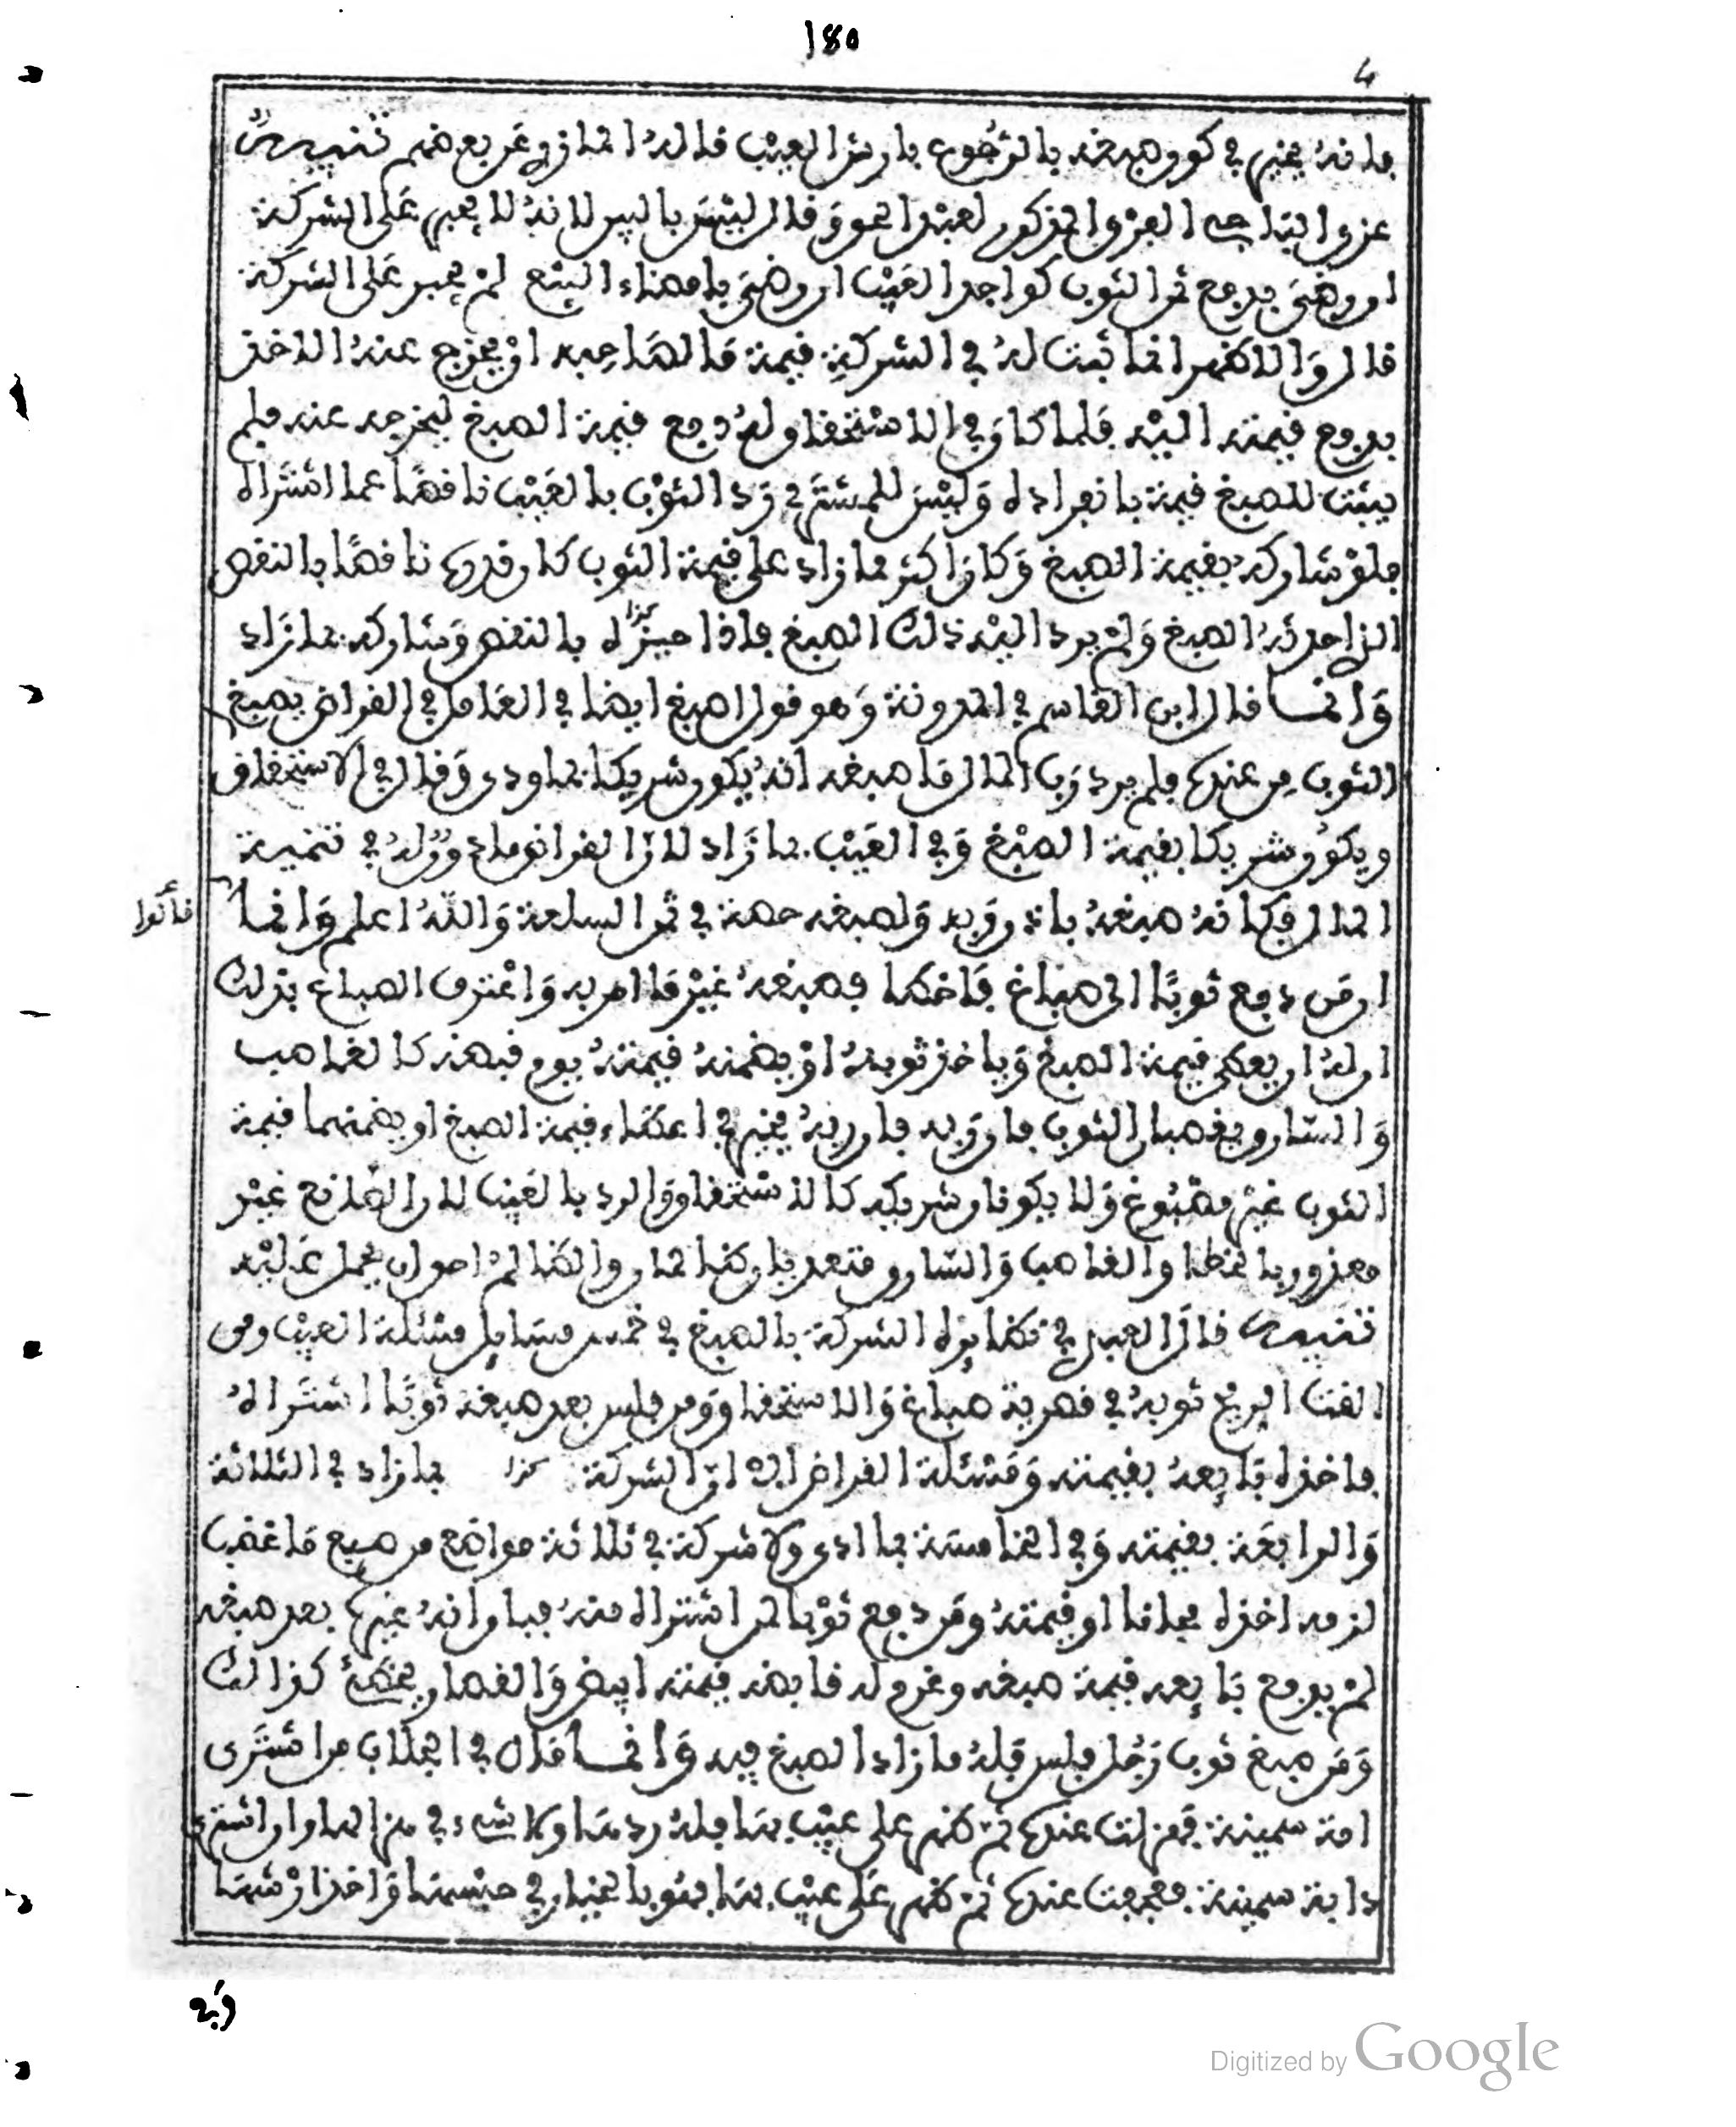 180
4
فإنه يخير في كون صبغه بالرجوع بارش العيب قاله المازري عن بعضهم تنبيه
عزو الباجي العزو المذكور لعبد الحق وقال ليس بالبين لانه لا يجبر على الشركة
او رضي بدفع ثمن الثوب كواجد العيب ان رضي بامضاء البيع لم يجبر على الشركة
قال والاظهر انما ثبت له في الشركة قيمة ما لصاحبه او يخرج عنه الاخذ
بدفع قيمته اليه فلما كان في الاستحقاق له دفع قيمة الصبغ ليخرجه عنه فلم
يثبت للصبغ قيمة بانفراده وليس للمشتري رد الثوب بالعيب ناقصا عما اشتراه
فلو شاركه بقيمة الصبغ وكان اكثر مما زاد على قيمة الثوب كان قد رده ناقصا بالنقص
الذي احدثه الصبغ ولم يرد اليه ذلك الصبغ فاذا كذا بالنقص وشاركه بما زاد
وانما قال ابن القاسم في المدونة وهو قول اصبغ ايضا في العامل في القراض يصبغ
الثوب من عنده فلم يرد رب المال ما صبغه انه يكون شريكا بما ودى وقال في الاستحقاق
ويكون شريكا بقيمة الصبغ وفي العيب بما زاد لان القراض ماذون له في تنمية
المال فكانه صبغه باذن ربه ولصبغه حصة في ثمن السلعة والله اعلم وانما
قالوا
ان من دفع ثوبا الى صباغ فاخطا فصبغه غير ما امر به واعترف الصباغ بذلك
ان له ان يعطى قيمة الصبغ وياخذ ثوبه او يضمنه قيمته يوم قبضه كالغاصب
والسارق يغصبان الثوب فان ربه يخير في اعطاء قيمة الصبغ او يضمنهما قيمة
الثوب غير مصبوغ ولا يكونان شريكه كالاستحقاق والرد بالعيب لان الصانع غير
معذور بالخطا والغاصب والسارق متعديان ظالمان والظالم احق ان يحمل عليه
تنبيه قال العبدي في نظايره الشركة بالصبغ في خمس مسايل مسئلة العيب ومن
القت الريح ثوبه في قصرية صباغ والاستحقاق ومن فلس بعد صبغه ثوبا اشتراه
فاخذه بايعه بقيمته ومسئلة القراض الشركة كذا بما زاد في الثلاثة
والرابعة بقيمته وفي الخامسة بما ادى ولا شركة في ثلاثة مواضع من صبغ ما غصب
لزمه اخذه مجانا او قيمته ومن دفع ثوبا لمن اشتراه منه فبان انه غيره بعد صبغه
لم يدفع بايعه قيمة صبغه وغرم له قابضه قيمته ابيض والقصار يخطئ كذالك
ومن صبغ ثوب رجل فلس فله ما زاد الصبغ فيه وانما قال في الجلاب من اشترى
امة سمينة فهزلت عنده ثم ظهر على عيب بها فله ردها ولا شيء في هزالها وان اشترى
دابة سمينة فعجفت عنده ثم ظهر على عيب بها فهو بالخيار في حبسها واخذ ارشها
Digitized by Google